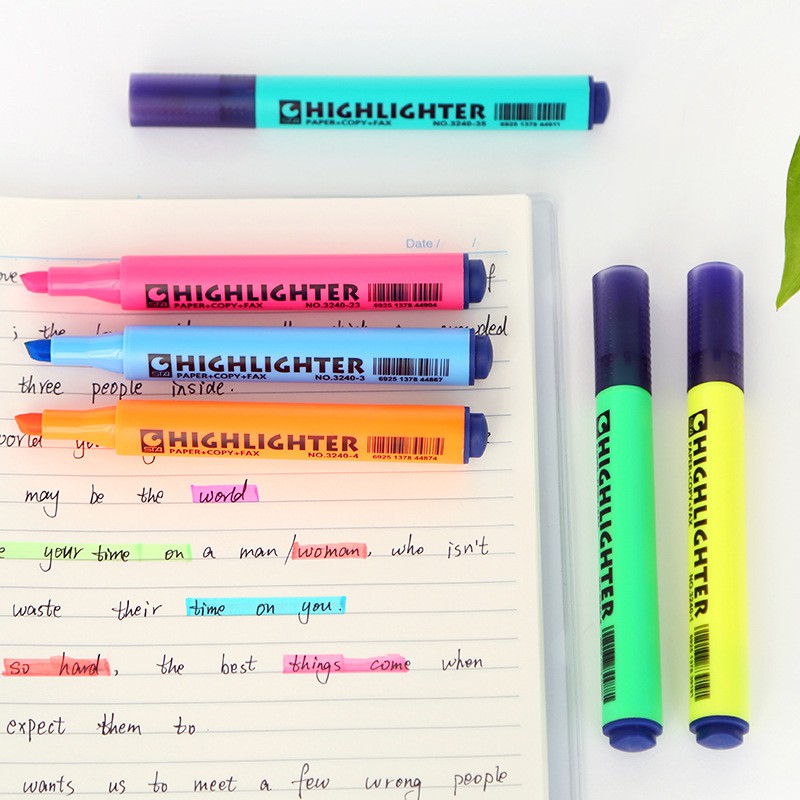 HIGHLIGHTER
PAPER+COPY+FAX NO.3240-35 6925 1378 44911
Date / /
HIGHLIGHTER
STA PAPER+COPY+FAX NO.3240-23 6925 1378 44904
; the
HIGHLIGHTER
STA PAPER+COPY+FAX NO.3240-3 6925 1378 44867
three people inside.
HIGHLIGHTER
STA PAPER+COPY+FAX NO.3240-4 6925 1378 44874
may be the world
your time on a man/woman, who isn't
waste their time on you.
so hard, the best things come when
expect them to
wants us to meet a few wrong people
HIGHLIGHTER
HIGHLIGHTER
PAPER+COPY+FAX